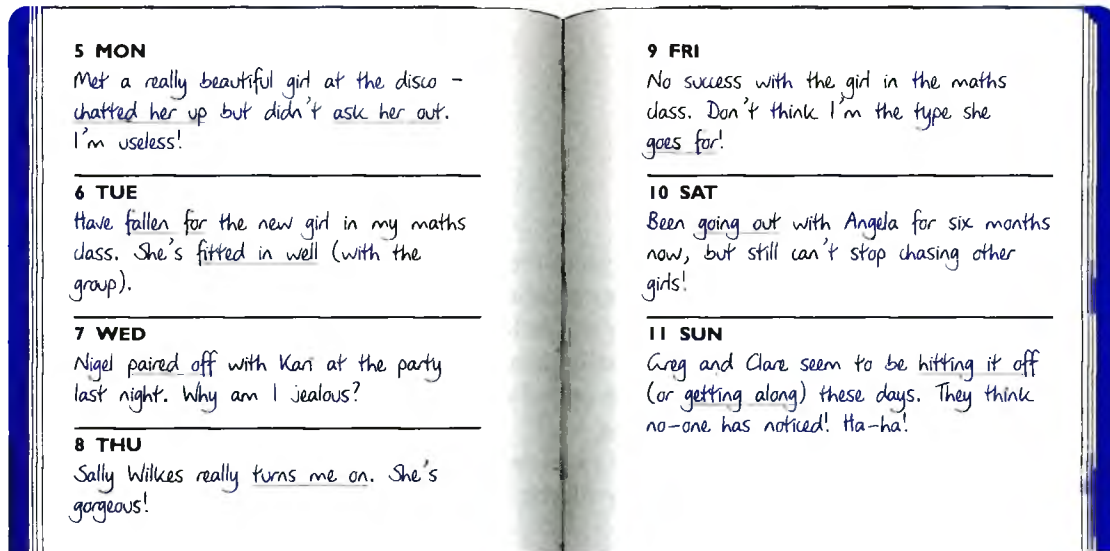 5 MON
Met a really beautiful girl at the disco –
chatted her up but didn't ask her out.
I'm useless!
6 TUE
Have fallen for the new girl in my maths
class. She's fitted in well (with the
group).
7 WED
Nigel paired off with Kari at the party
last night. Why am I jealous?
8 THU
Sally Wilkes really turns me on. She's
gorgeous!
9 FRI
No success with the girl in the maths
class. Don't think I'm the type she
goes for!
10 SAT
Been going out with Angela for six months
now, but still can't stop chasing other
girls!
11 SUN
Greg and Clare seem to be hitting it off
(or getting along) these days. They think
no-one has noticed! Ha-ha!